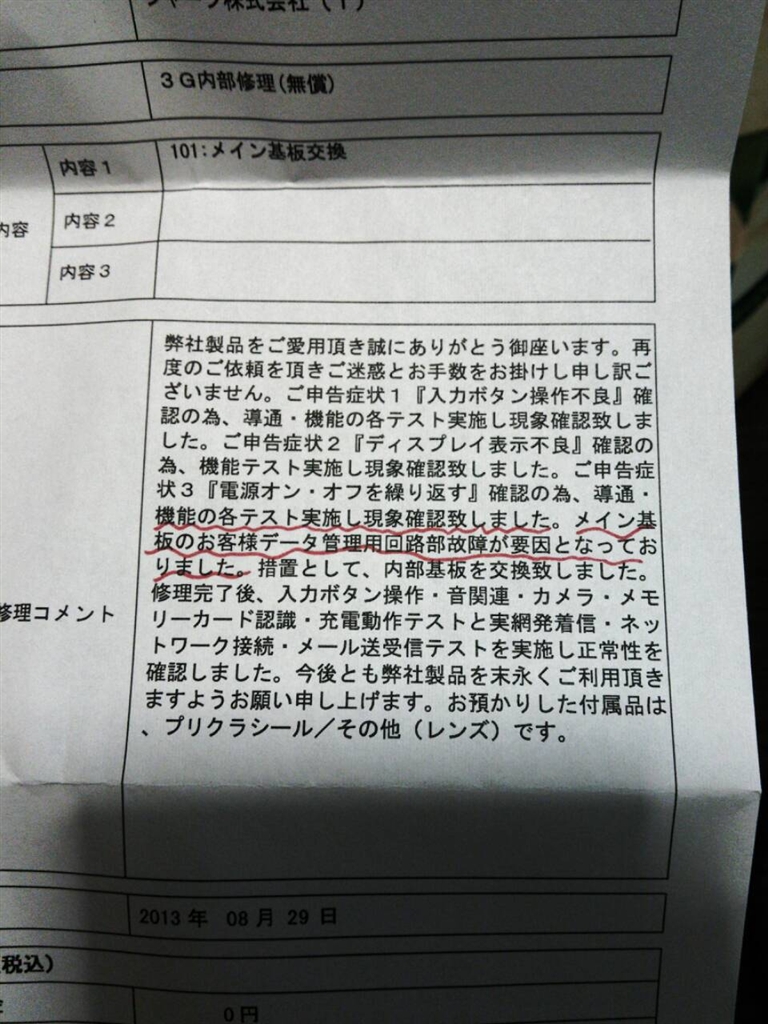 シャープ株式会社（T）
3G内部修理(無償)
内容1
101:メイン基板交換
内容
内容2
内容3
弊社製品をご愛用頂き誠にありがとう御座います。再
度のご依頼を頂きご迷惑とお手数をお掛けし申し訳ご
ざいません。ご申告症状1『入力ボタン操作不良』確
認の為、導通・機能の各テスト実施し現象確認致しま
した。ご申告症状2『ディスプレイ表示不良』確認の
為、機能テスト実施し現象確認致しました。ご申告症
状3『電源オン・オフを繰り返す』確認の為、導通・
機能の各テスト実施し現象確認致しました。メイン基
板のお客様データ管理用回路部故障が要因となってお
りました。措置として、内部基板を交換致しました。
修理完了後、入力ボタン操作・音関連・カメラ・メモ
リーカード認識・充電動作テストと実網発着信・ネッ
トワーク接続・メール送受信テストを実施し正常性を
確認しました。今後とも弊社製品を末永くご利用頂き
ますようお願い申し上げます。お預かりした付属品は
、プリクラシール／その他（レンズ）です。
修理コメント
2013年 08月 29日
税込)
0円